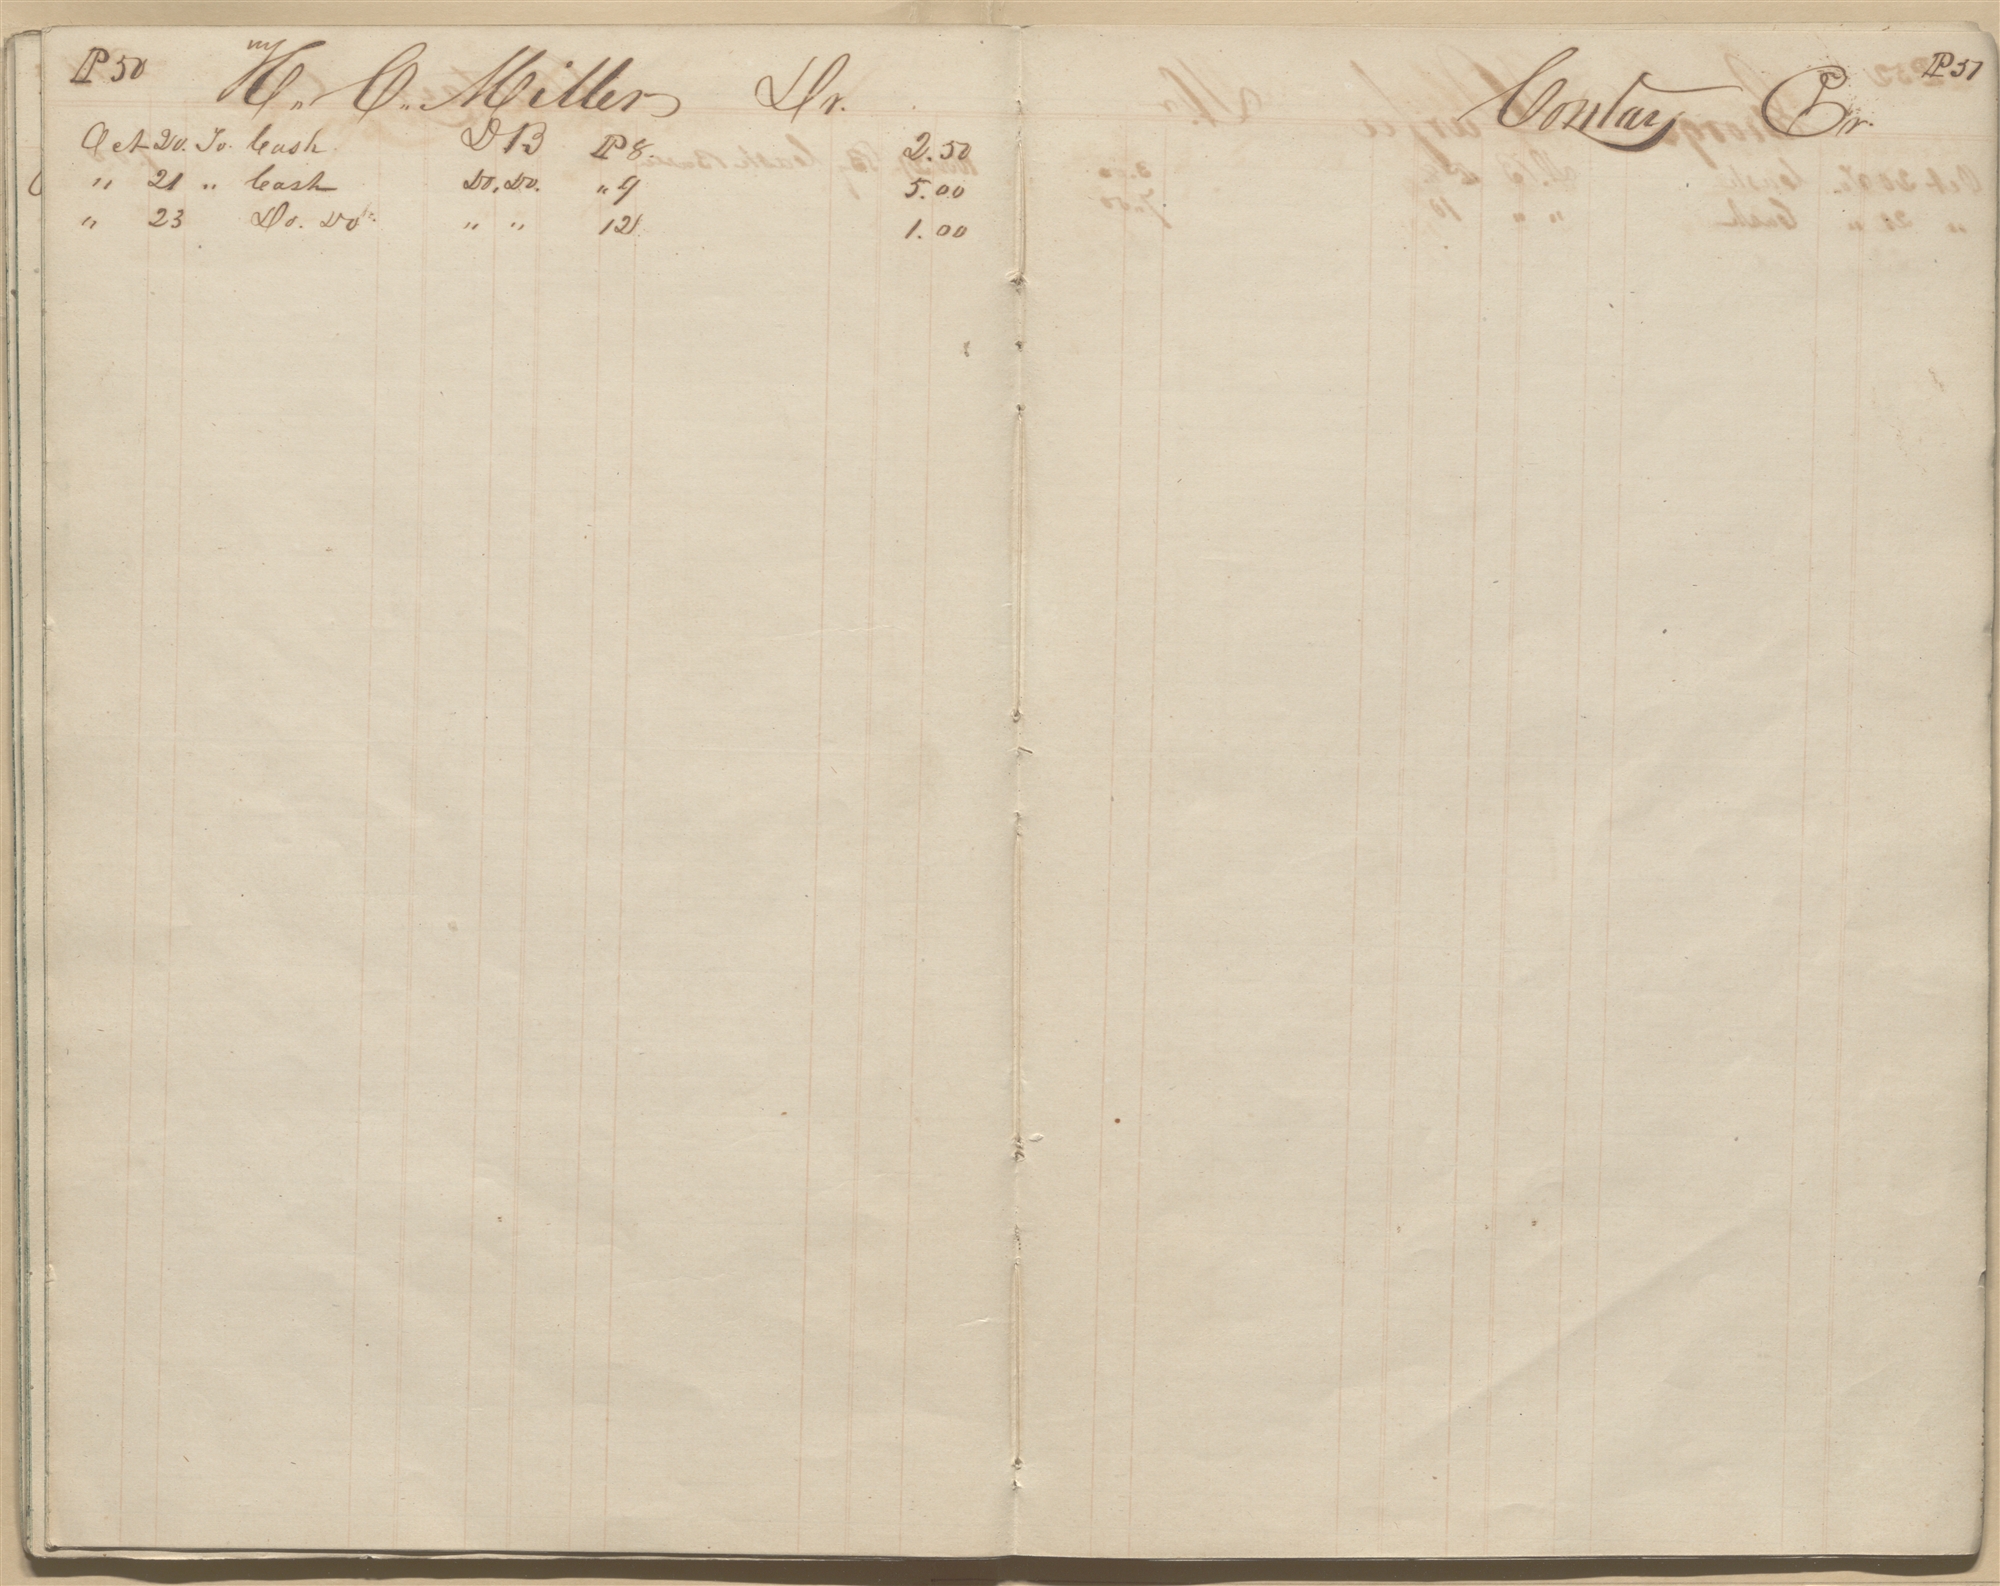 P 50 H. C. Miller Dr.
Oct 20. To. Cash D B P 8. 2.50
" 21 " Cash Do. Do. " 9 5.00
" 23 Do. Do " " 12 1.00
Contay Cr. P 51